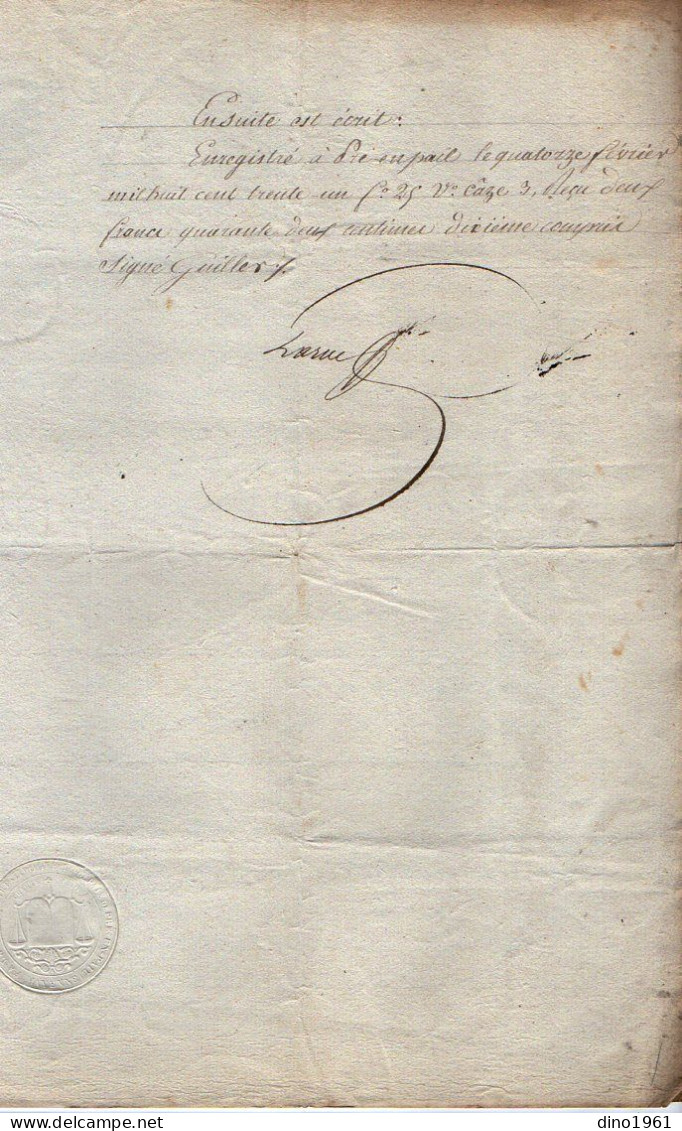 Ensuite est écrit:
Enregistré à Pré en pail le quatorze février
mil huit cent trente un fo 25 Vo Caze 3, Reçu deux
francs quarante deux centimes dixième compris
Signé Guiller
dino1961